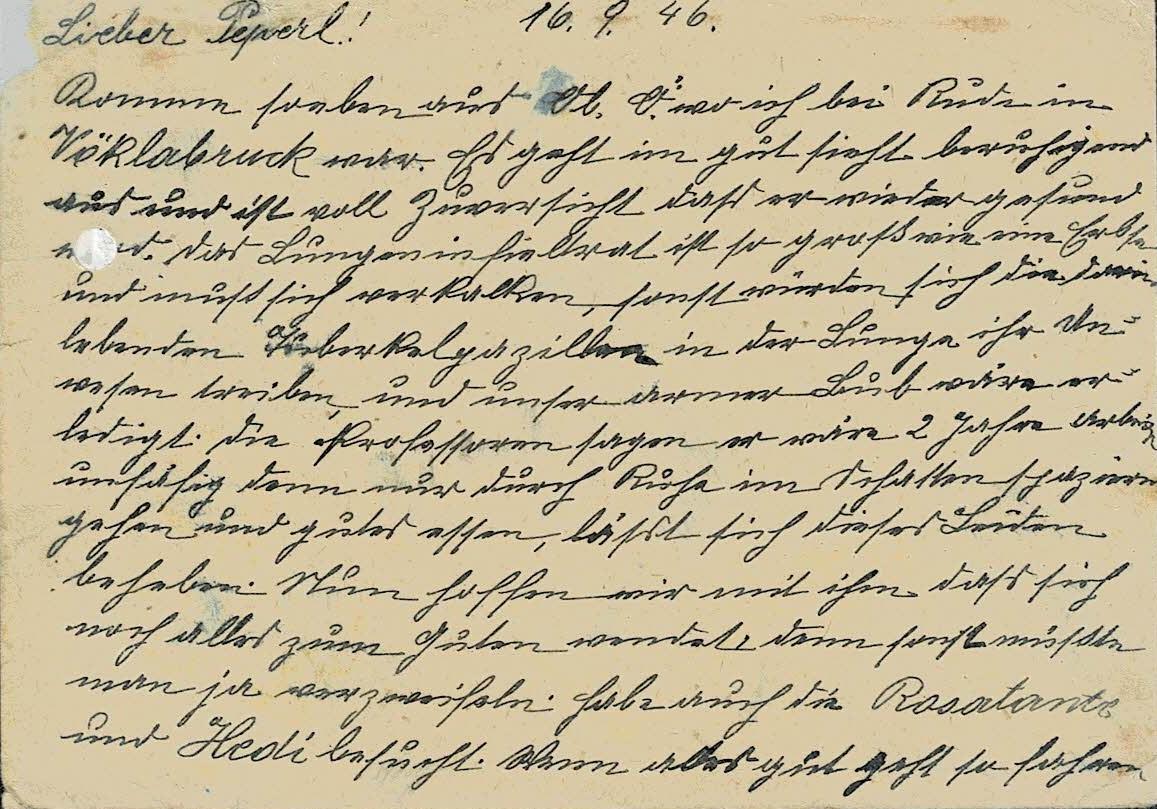 Lieber Peperl! 16. 9. 46.
Komme soeben aus Ob. Ö. wo ich bei Rudi in
Vöklabruck war. Es geht im gut sieht beruhigend
aus und ist voll Zuversicht dass er wieder gesund
wird. Das Lungeninfieltrat ist so groß wie eine Erbse
und muß sich verkalken, sonst würden sich die darin
lebenden Tuberkelpazillen in der Lunge ihr Un-
wesen treiben, und unser armer Bub wäre er-
ledigt. Die Professoren sagen er wäre 2 Jahre arbeits
unfähig denn nur durch Ruhe im Schatten spazieren
gehen und gutes essen, lässt sich dieses Leiden
beheben. Nun hoffen wir mit ihm dass sich
noch alles zum Guten wendet, denn sonst müsste
man ja verzweifeln. Habe auch die Rosatante
und Hedi besucht. Wenn alles gut geht so fahren